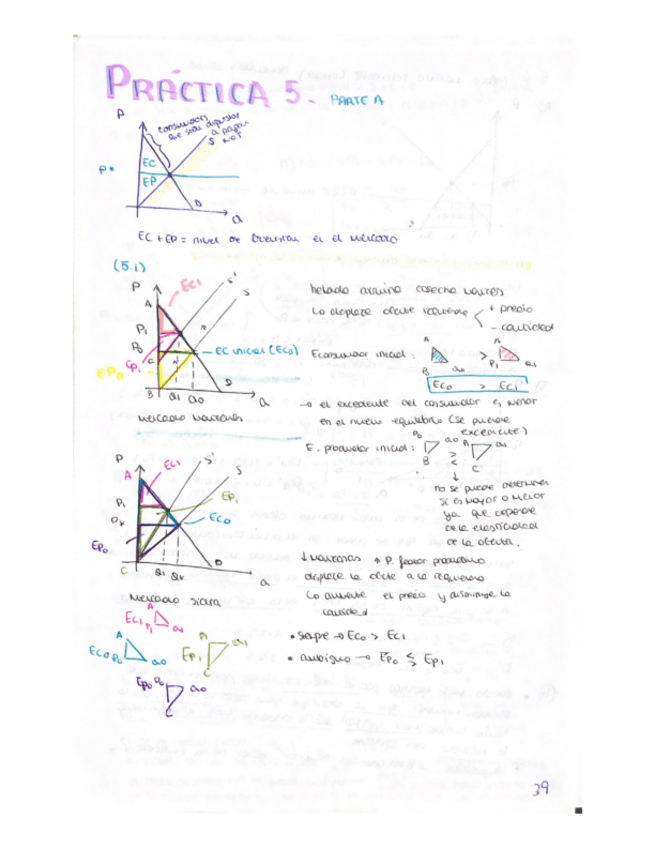 PRÁCTICA 5. PARTE A
P
consumidores
que están dispuestos
a pagar
S
P*
EC
EP
D
Q
EC + EP = nivel de bienestar en el mercado
(5.1)
P
EC1
S'
S
A
P1
P0
EP1
C
EP0
B
Q1 Q0
D
Q
EC inicial (EC0)
mercado manzanas
helada arruina cosecha manzanas
Lo desplaza oferta izquierda
+ precio
- cantidad
E consumidor inicial:
A
B
Q0
>
A
P1
Q1
EC0 > EC1
→ el excedente del consumidor es menor
en el nuevo equilibrio (se pierde
excedente)
E. productor inicial:
P0
Q0
B
>
<
P1
Q1
C
↓
no se puede determinar
si es mayor o menor
ya que depende
de la elasticidad
de la oferta.
P
EC1
S'
S
A
P1
EP1
EC0
EP0
C
Q1
D
Q
mercado sidra
↓ manzanas ↑ P. factor productivo
desplaza la oferta a la izquierda
Lo aumenta el precio y disminuye la
cantidad
EC1
A
P1
Q1
EC0
A
P0
Q0
EP1
P1
Q1
C
EP0
P0
Q0
C
• siempre → EC0 > EC1
• ambiguo → EP0 ≶ EP1
39